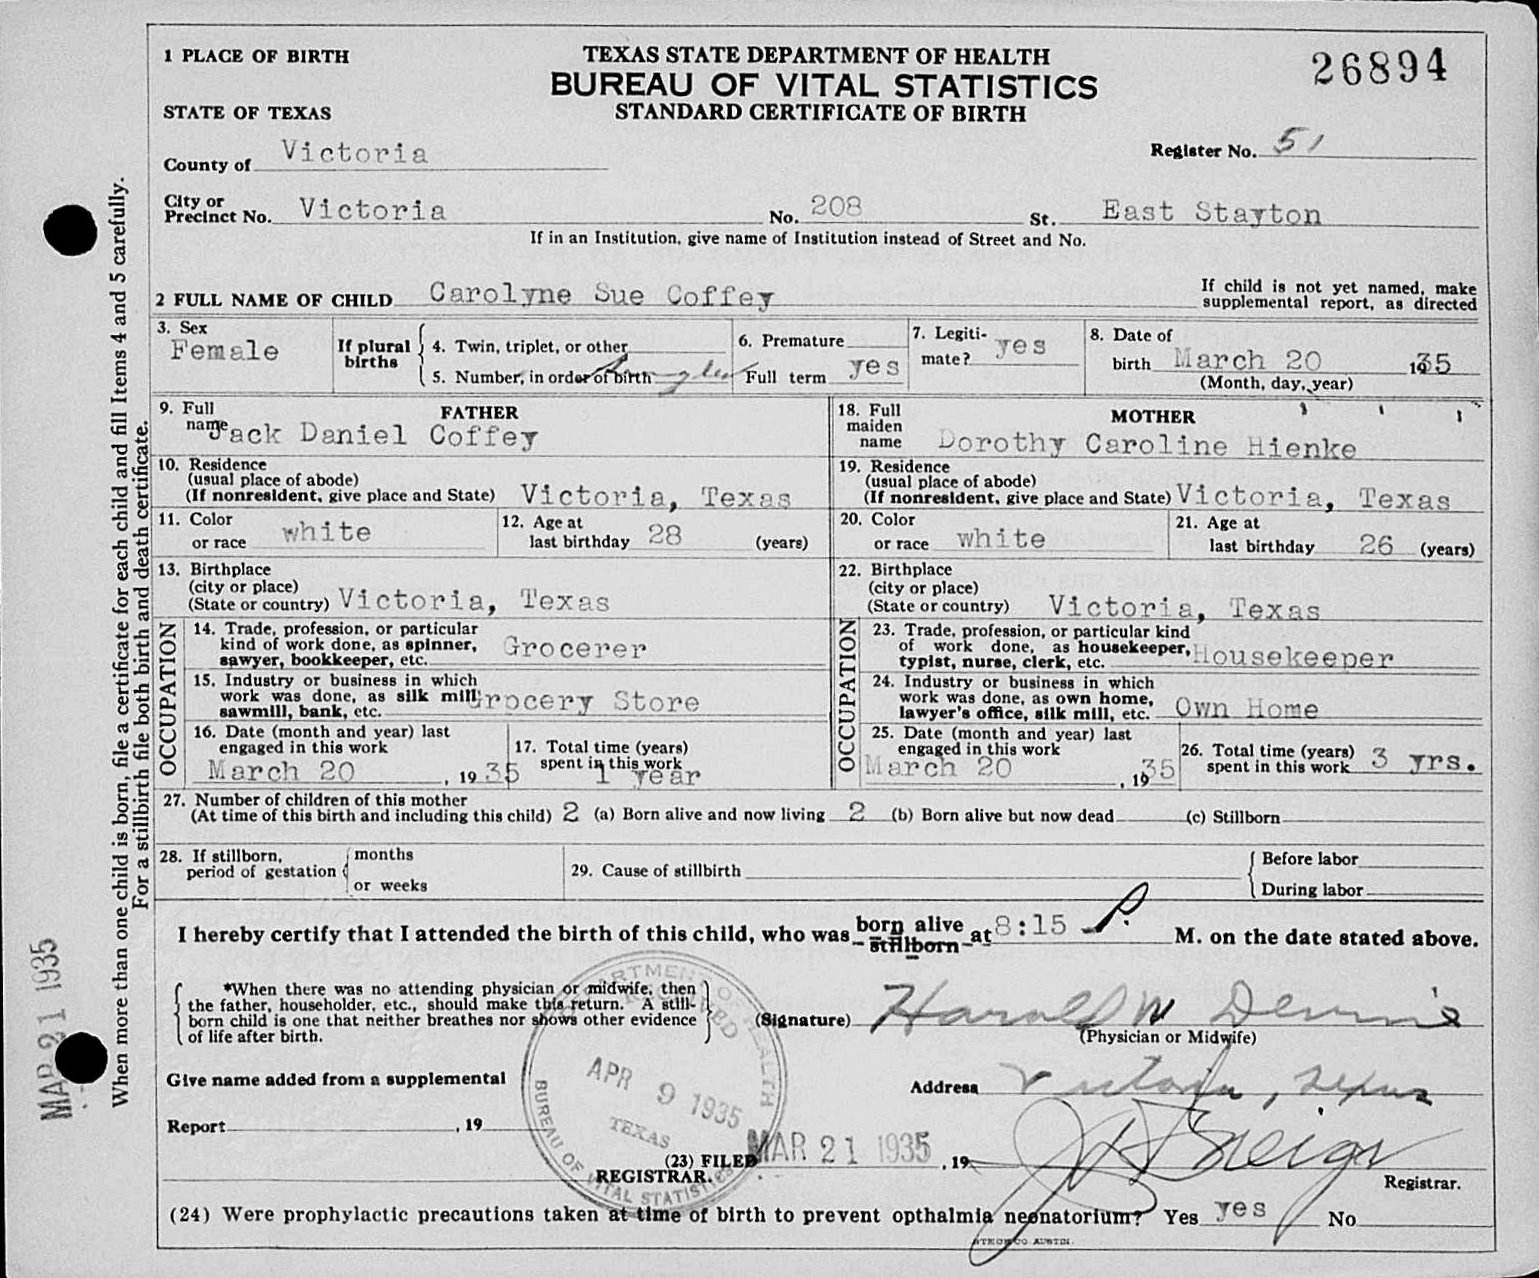 1 PLACE OF BIRTH
TEXAS STATE DEPARTMENT OF HEALTH
BUREAU OF VITAL STATISTICS
STANDARD CERTIFICATE OF BIRTH
26894
STATE OF TEXAS
County of Victoria
Register No. 51
City or Precinct No. Victoria No. 208 St. East Stayton
If in an Institution, give name of Institution instead of Street and No.
2 FULL NAME OF CHILD Carolyne Sue Coffey
If child is not yet named, make
supplemental report, as directed
3. Sex
Female
If plural births
4. Twin, triplet, or other
5. Number, in order of birth
6. Premature
Full term yes
7. Legiti-
mate? yes
8. Date of
birth March 20 1935
(Month, day, year)
FATHER
9. Full name Jack Daniel Coffey
10. Residence
(usual place of abode)
(If nonresident, give place and State) Victoria, Texas
11. Color
or race white
12. Age at
last birthday 28 (years)
13. Birthplace
(city or place)
(State or country) Victoria, Texas
OCCUPATION
14. Trade, profession, or particular
kind of work done, as spinner,
sawyer, bookkeeper, etc. Grocerer
15. Industry or business in which
work was done, as silk mill,
sawmill, bank, etc. Grocery Store
16. Date (month and year) last
engaged in this work
March 20, 1935
17. Total time (years)
spent in this work
1 year
MOTHER
18. Full
maiden
name Dorothy Caroline Hienke
19. Residence
(usual place of abode)
(If nonresident, give place and State) Victoria, Texas
20. Color
or race white
21. Age at
last birthday 26 (years)
22. Birthplace
(city or place)
(State or country) Victoria, Texas
OCCUPATION
23. Trade, profession, or particular kind
of work done, as housekeeper,
typist, nurse, clerk, etc. Housekeeper
24. Industry or business in which
work was done, as own home,
lawyer's office, silk mill, etc. Own Home
25. Date (month and year) last
engaged in this work
March 20, 1935
26. Total time (years)
spent in this work 3 yrs.
27. Number of children of this mother
(At time of this birth and including this child) 2 (a) Born alive and now living 2 (b) Born alive but now dead (c) Stillborn
28. If stillborn,
period of gestation
months
or weeks
29. Cause of stillbirth
Before labor
During labor
I hereby certify that I attended the birth of this child, who was born alive stillborn at 8:15 P. M. on the date stated above.
*When there was no attending physician or midwife, then
the father, householder, etc., should make this return. A still-
born child is one that neither breathes nor shows other evidence
of life after birth.
(Signature) Harold W Dennis
(Physician or Midwife)
Give name added from a supplemental
Address Victoria, Texas
Report , 19
DEPARTMENT OF HEALTH
RECEIVED
APR 9 1935
TEXAS
BUREAU OF VITAL STATISTICS
(23) FILED MAR 21 1935, 19
REGISTRAR.
Registrar.
(24) Were prophylactic precautions taken at time of birth to prevent opthalmia neonatorium? Yes yes No
When more than one child is born, file a certificate for each child and fill Items 4 and 5 carefully.
For a stillbirth file both birth and death certificate.
MAR 21 1935